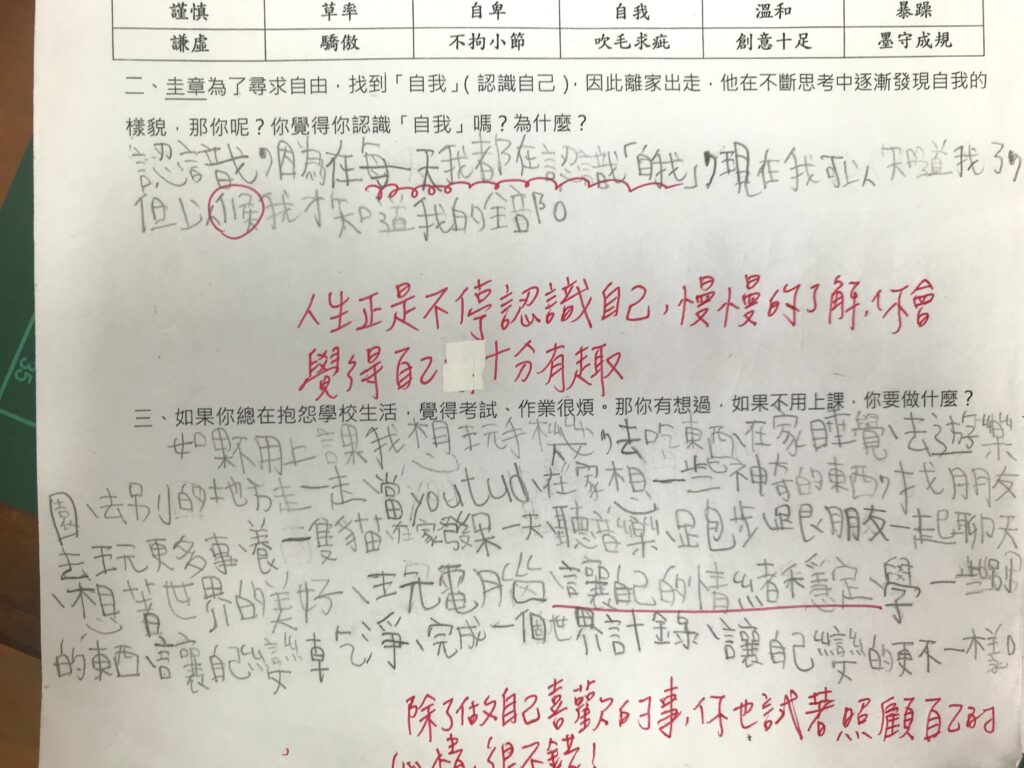 謹慎 草率 自卑 自我 溫和 暴躁
謙虛 驕傲 不拘小節 吹毛求疵 創意十足 墨守成規
二、圭章為了尋求自由，找到「自我」（認識自己），因此離家出走，他在不斷思考中逐漸發現自我的
樣貌，那你呢？你覺得你認識「自我」嗎？為什麼？
認識我，因為在每一天我都在認識「自我」，現在我可以知道我了，
但以候我才知道我的全部。
人生正是不停認識自己，慢慢的了解，你會
覺得自己 十分有趣
三、如果你總在抱怨學校生活，覺得考試、作業很煩。那你有想過，如果不用上課，你要做什麼？
如果不用上課我想玩手機，去吃東西、在家睡覺、去遊樂
園、去別的地方走一走、當youtud、在家想一些神奇的東西，找朋友
去玩更多事、養一隻貓在家發呆一天、聽音樂、跑步、跟朋友一起聊天
、想著世界的美好、玩電腦、讓自己的情緒穩定、學一些別
的東西、讓自己變乾淨、完成一個世界計錄、讓自己變的更不一樣。
除了做自己喜歡的事，你也試著照顧自己的
心情，很不錯！
35